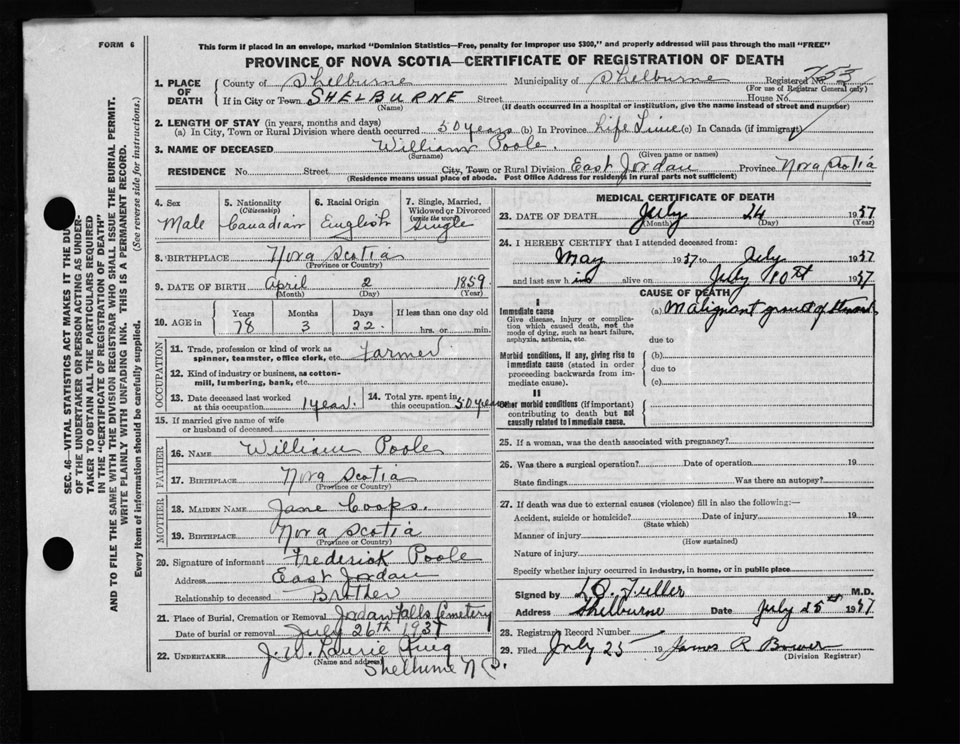 FORM 6
This form if placed in an envelope, marked "Dominion Statistics—Free, penalty for improper use $300," and properly addressed will pass through the mail "FREE"
PROVINCE OF NOVA SCOTIA—CERTIFICATE OF REGISTRATION OF DEATH
1. PLACE OF DEATH
County of Shelburne Municipality of Shelburne Registered No. 755
(For use of Registrar General only)
If in City or Town SHELBURNE Street House No.
(Name) (If death occurred in a hospital or institution, give the name instead of street and number)
2. LENGTH OF STAY (in years, months and days)
(a) In City, Town or Rural Division where death occurred 50 years (b) In Province Life Time (c) In Canada (if immigrant)
3. NAME OF DECEASED William Poole
(Surname) (Given name or names)
RESIDENCE No. Street City, Town or Rural Division East Jordan Province Nova Scotia
(Residence means usual place of abode. Post Office Address for residents in rural parts not sufficient)
4. Sex Male
5. Nationality (Citizenship) Canadian
6. Racial Origin English
7. Single, Married, Widowed or Divorced (write the word) Single
8. BIRTHPLACE Nova Scotia
(Province or Country)
9. DATE OF BIRTH April 2 1859
(Month) (Day) (Year)
10. AGE in Years Months Days If less than one day old
78 3 22 hrs. or min.
OCCUPATION
11. Trade, profession or kind of work as spinner, teamster, office clerk, etc. Farmer
12. Kind of industry or business, as cotton-mill, lumbering, bank, etc.
13. Date deceased last worked at this occupation 1 year
14. Total yrs. spent in this occupation 50 years
15. If married give name of wife or husband of deceased
FATHER
16. NAME William Poole
17. BIRTHPLACE Nova Scotia
(Province or Country)
MOTHER
18. MAIDEN NAME Jane
19. BIRTHPLACE Nova Scotia
(Province or Country)
20. Signature of informant Frederick Poole
Address East Jordan
Relationship to deceased Brother
21. Place of Burial, Cremation or Removal Jordan Falls Cemetery
Date of burial or removal July 26th 1937
22. UNDERTAKER J. W. Laurie
(Name and address) Shelburne N.S.
MEDICAL CERTIFICATE OF DEATH
23. DATE OF DEATH July 24 1937
(Month) (Day) (Year)
24. I HEREBY CERTIFY that I attended deceased from:
May 1937 to July 1937
and last saw him alive on July 10th 1937
CAUSE OF DEATH
I
Immediate cause (a) Malignant growth of Stomach
Give disease, injury or complication which caused death, not the mode of dying, such as heart failure, asphyxia, asthenia, etc.
due to
Morbid conditions, if any, giving rise to immediate cause (stated in order proceeding backwards from immediate cause).
(b)
due to
(c)
II
Other morbid conditions (if important) contributing to death but not causally related to immediate cause.
25. If a woman, was the death associated with pregnancy?
26. Was there a surgical operation? Date of operation 19
State findings Was there an autopsy?
27. If death was due to external causes (violence) fill in also the following:—
Accident, suicide or homicide? Date of injury 19
(State which)
Manner of injury
(How sustained)
Nature of injury
Specify whether injury occurred in industry, in home, or in public place
Signed by L.O. Fuller M.D.
Address Shelburne Date July 25th 1937
28. Registrar's Record Number
29. Filed July 25 19 James R Bower
(Division Registrar)
SEC. 46—VITAL STATISTICS ACT MAKES IT THE DUTY
OF THE UNDERTAKER OR PERSON ACTING AS UNDERTAKER TO OBTAIN ALL THE PARTICULARS REQUIRED
IN THE "CERTIFICATE OF REGISTRATION OF DEATH"
AND TO FILE THE SAME WITH THE DIVISION REGISTRAR WHO SHALL ISSUE THE BURIAL PERMIT.
WRITE PLAINLY WITH UNFADING INK. THIS IS A PERMANENT RECORD.
Every item of information should be carefully supplied. (See reverse side for instructions.)